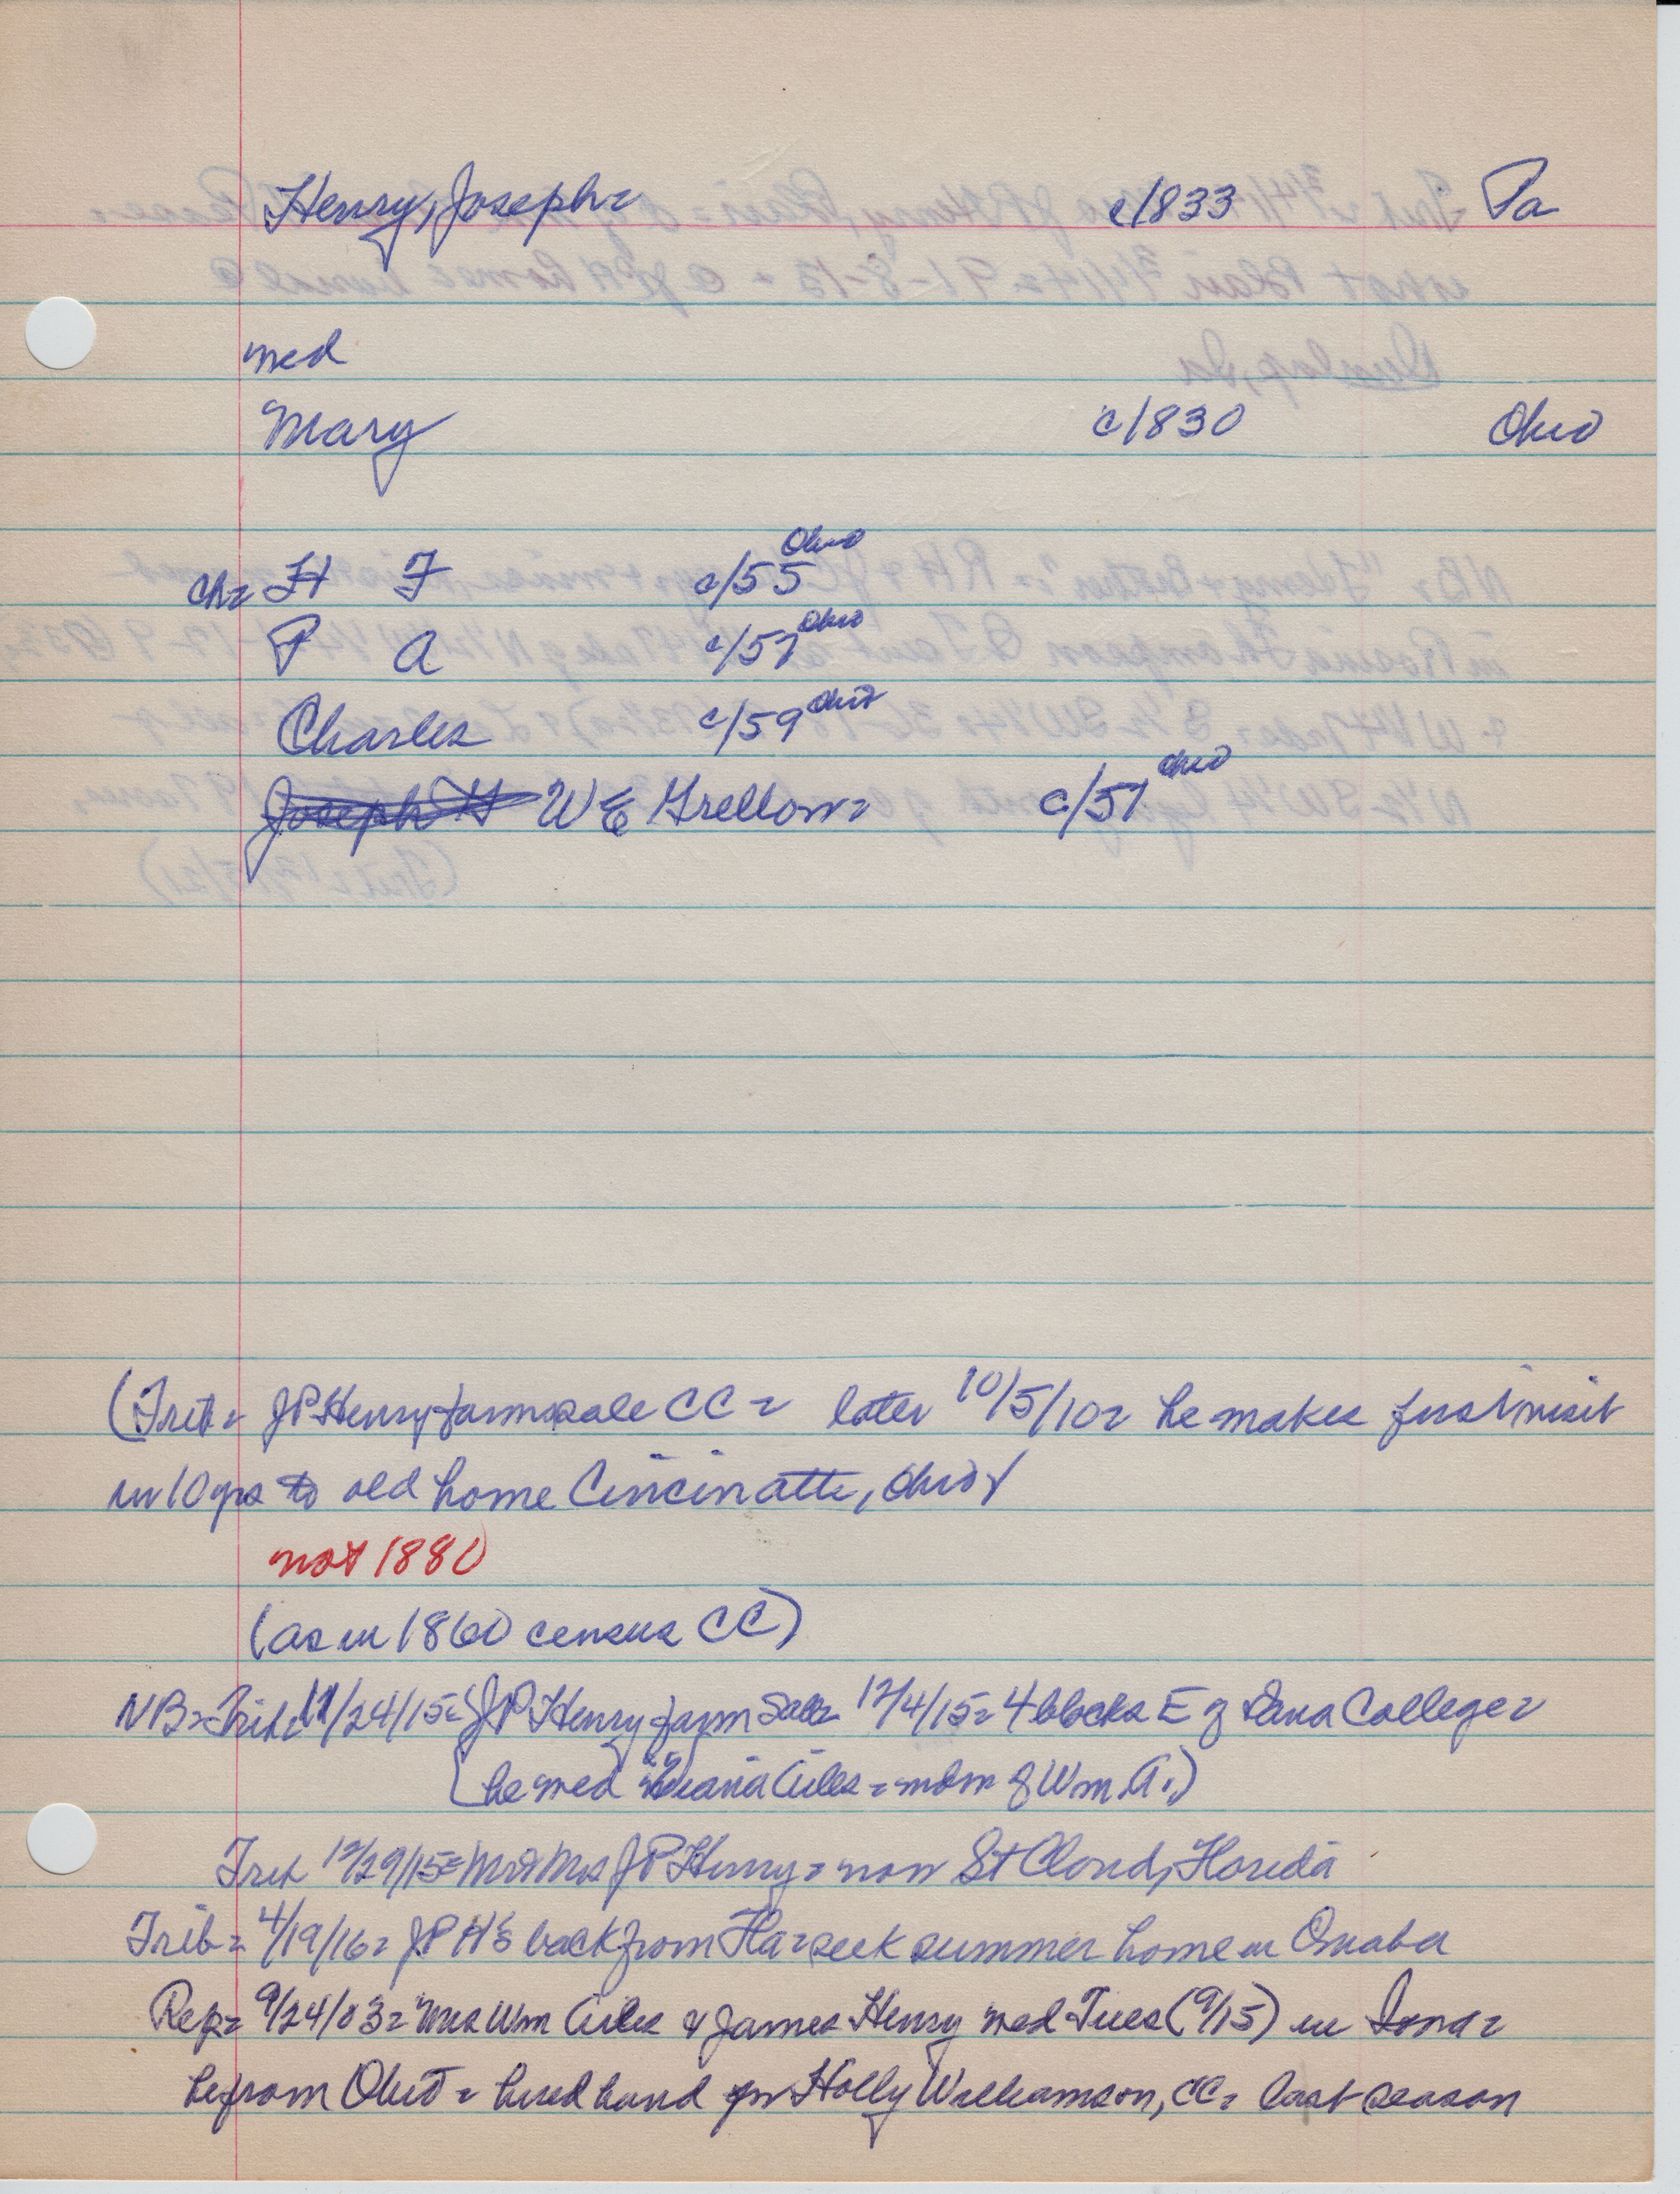 Henry, Joseph= c/1833 Pa
med
Mary c/1830 Ohio
Ch= H F c/55 Ohio
P A c/57 Ohio
Charles c/59 Ohio
Joseph H W E Grellom= c/51 Ohio
(Trib= JP Henry farm sale CC= later 10/5/10= he makes first visit
in 10 yrs to old home Cincinatti, Ohio)
not 1880
(as in 1860 census CC)
NB= Trib= 11/24/15= JP Henry farm sale= 12/4/15= 4 blocks E of Dana College=
(he med Ailes= mom of Wm A.)
Trib 12/29/15= Mr & Mrs JP Henry= now St Cloud, Florida
Trib= 4/19/16= JP H's back from Fla= seek summer home in Omaha
Rep= 9/24/03= Mrs Wm Ailes & James Henry med Tues (9/15) in Iowa=
he from Ohio= hired hand for Holly Williamson, CC= last season